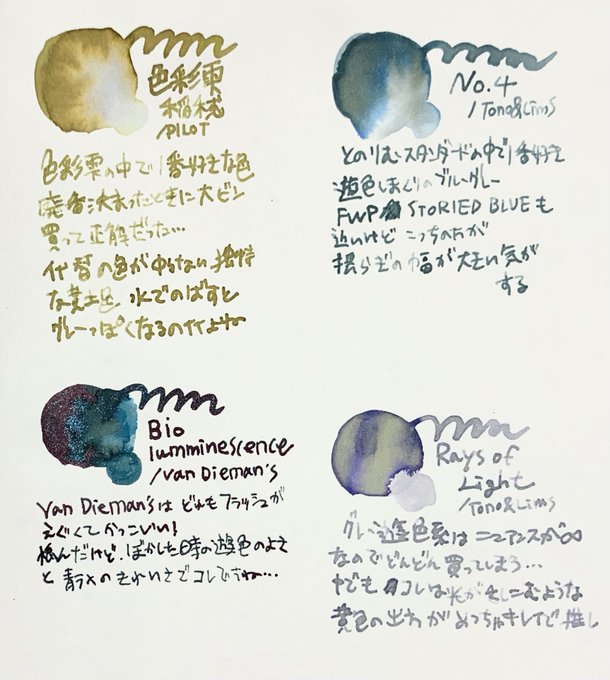 色彩雫
稲穂
/PILOT
色彩雫の中で1番好きな色
廃番決まったときに大ビン
買って正解だった…
代替の色が中々ない独特
な黄土色 水でのばすと
グレーっぽくなるのイイよね
No.4
/Tono&Lims
とのりむスタンダードの中で1番好き
遊色しまくりのブルーグレー
FWP STORIED BLUEも
近いけど こっちの方が
揺らぎの幅が大きい気が
する
Bio
lumminescence
/van Dieman's
Van Dieman'sは どれもフラッシュが
えぐくてかっこいい!
悩んだけど、ぼかした時の遊色のよさ
と 青ラメのきれいさでコレですね…
Rays of
Light
/Tono&Lims
グレー遊色系は ニュアンスが∞
なのでどんどん買ってしまう…
中でも コレは光が差しこむような
黄色の出方がめっちゃキレイで推し